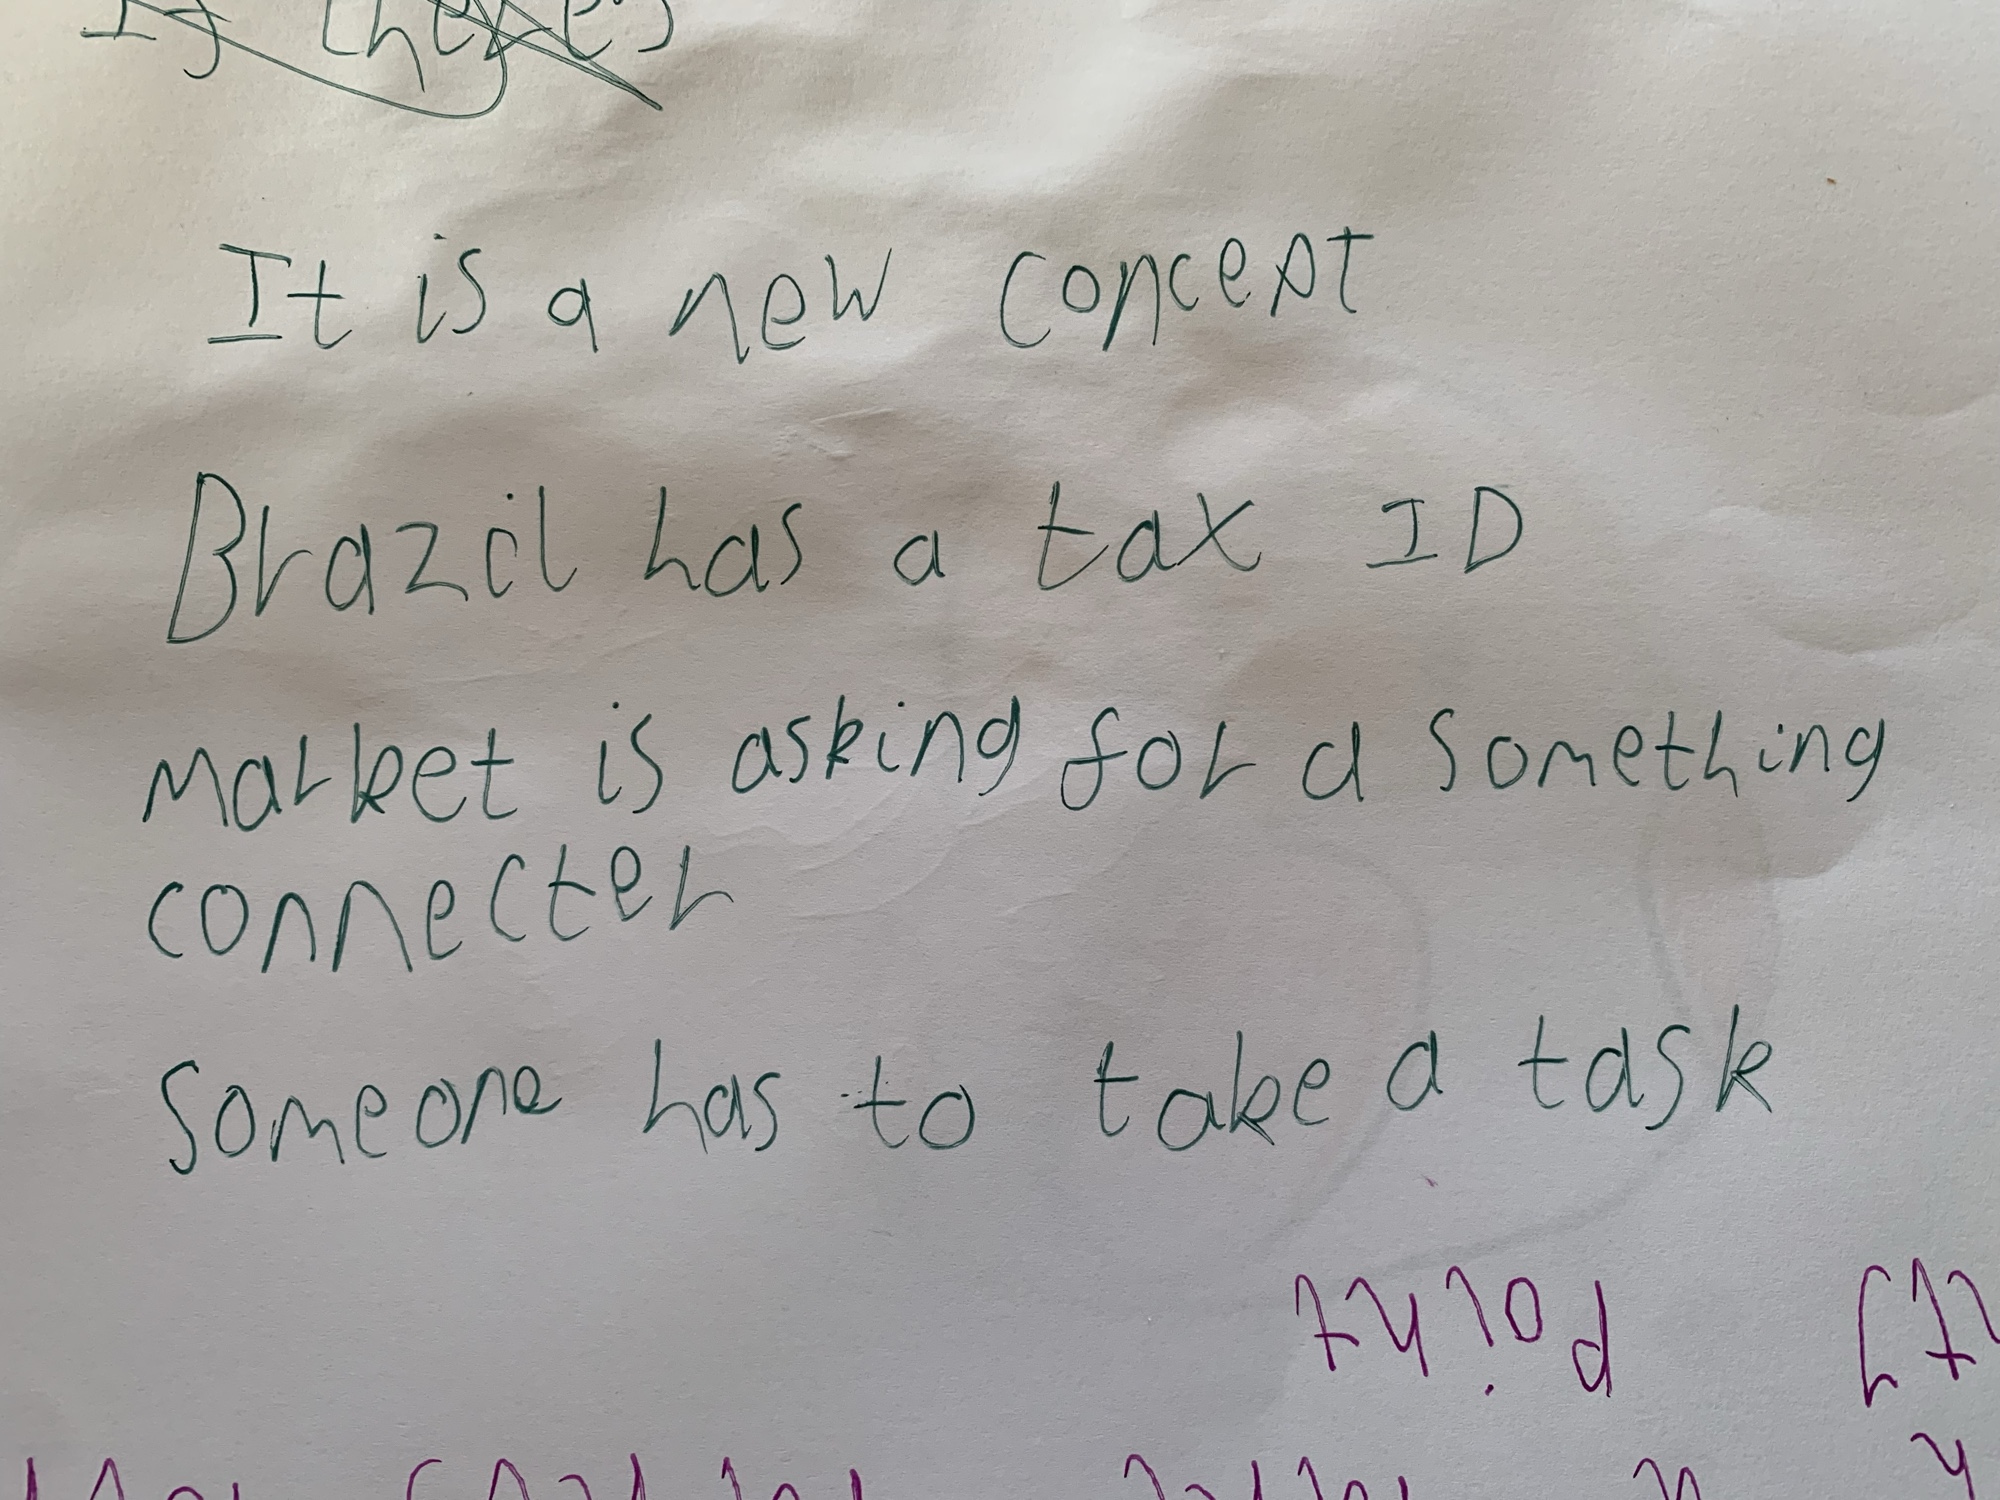 It is a new concept
Brazil has a tax ID
Market is asking for a something
connecter
Someone has to take a task
Point